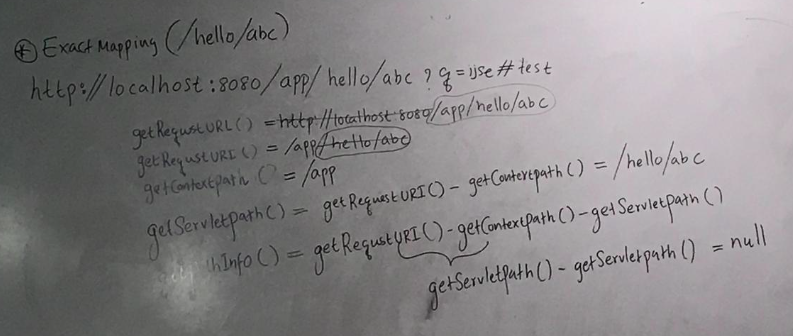 * Exact Mapping (/hello/abc)
http://localhost:8080/app/hello/abc ? q=ijse#test
getRequstURL() = http://localhost:8080/app/hello/abc
getRequstURI() = /app/hello/abc
getContextpath() = /app
getServletpath() = getRequestURI() - getContextpath() = /hello/abc
hInfo() = getRequstURI() - getContextPath() - getServletPath()
getServletpath() - getServletpath() = null